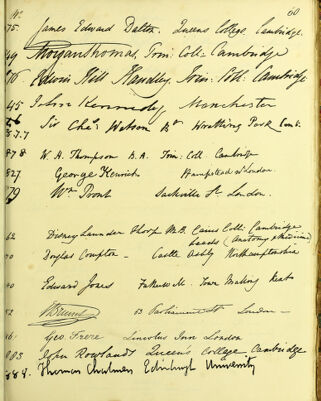 60
No.
75. James Edward Dalton. Queens College, Cambridge.
49 Morgan Thomas, Trin: Coll: Cambridge
Edwin Hill Handley, Trin: Coll: Cambridge
45 John Kennedy Manchester
Sir Chas. Watson Bt Wratting Park Camb.
878 W. H. Thompson B.A. Trin. Coll. Cambridge
827 George Kenrich Hampstead nr London.
79 Wm. Prout Sackville St. London.
62 Disney Launder Thorp M.B. Caius Coll: Cambridge
Leeds (Anatomy & Medicine)
Douglas Compton - Castle Ashby Northamptonshire
Edward Jones Town Malling Kent
Parliament St London -
Geo. Frere Lincolns Inn London
John Rowlands Queen's College, Cambridge
888. Thomas Chalmers Edinburgh University